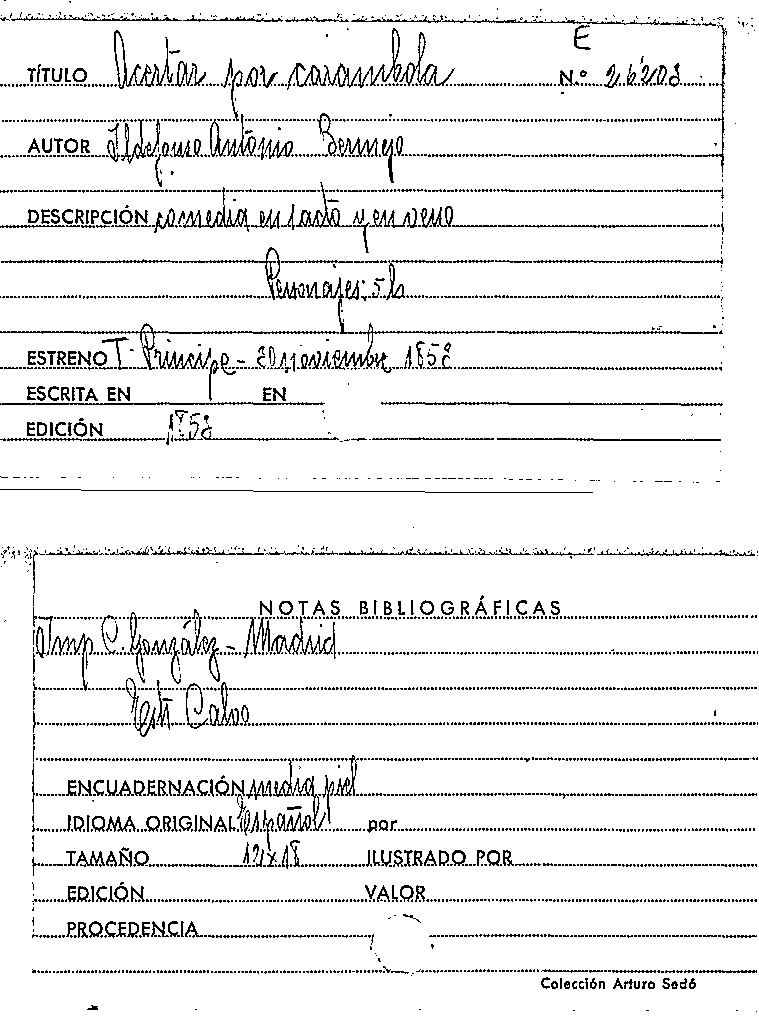 E
TÍTULO Acertar por carambola N.º 26203
AUTOR Ildefonso Antonio Bermejo
DESCRIPCIÓN comedia en 1 acto y en verso
Personajes: 5 h
ESTRENO T. Principe - 20 noviembre 1853
ESCRITA EN EN
EDICIÓN 1853
NOTAS BIBLIOGRÁFICAS
Imp C. González - Madrid
Calvo
ENCUADERNACIÓN media piel
IDIOMA ORIGINAL Español por
TAMAÑO 12 x 18 ILUSTRADO POR
EDICIÓN VALOR
PROCEDENCIA
Colección Arturo Sedó